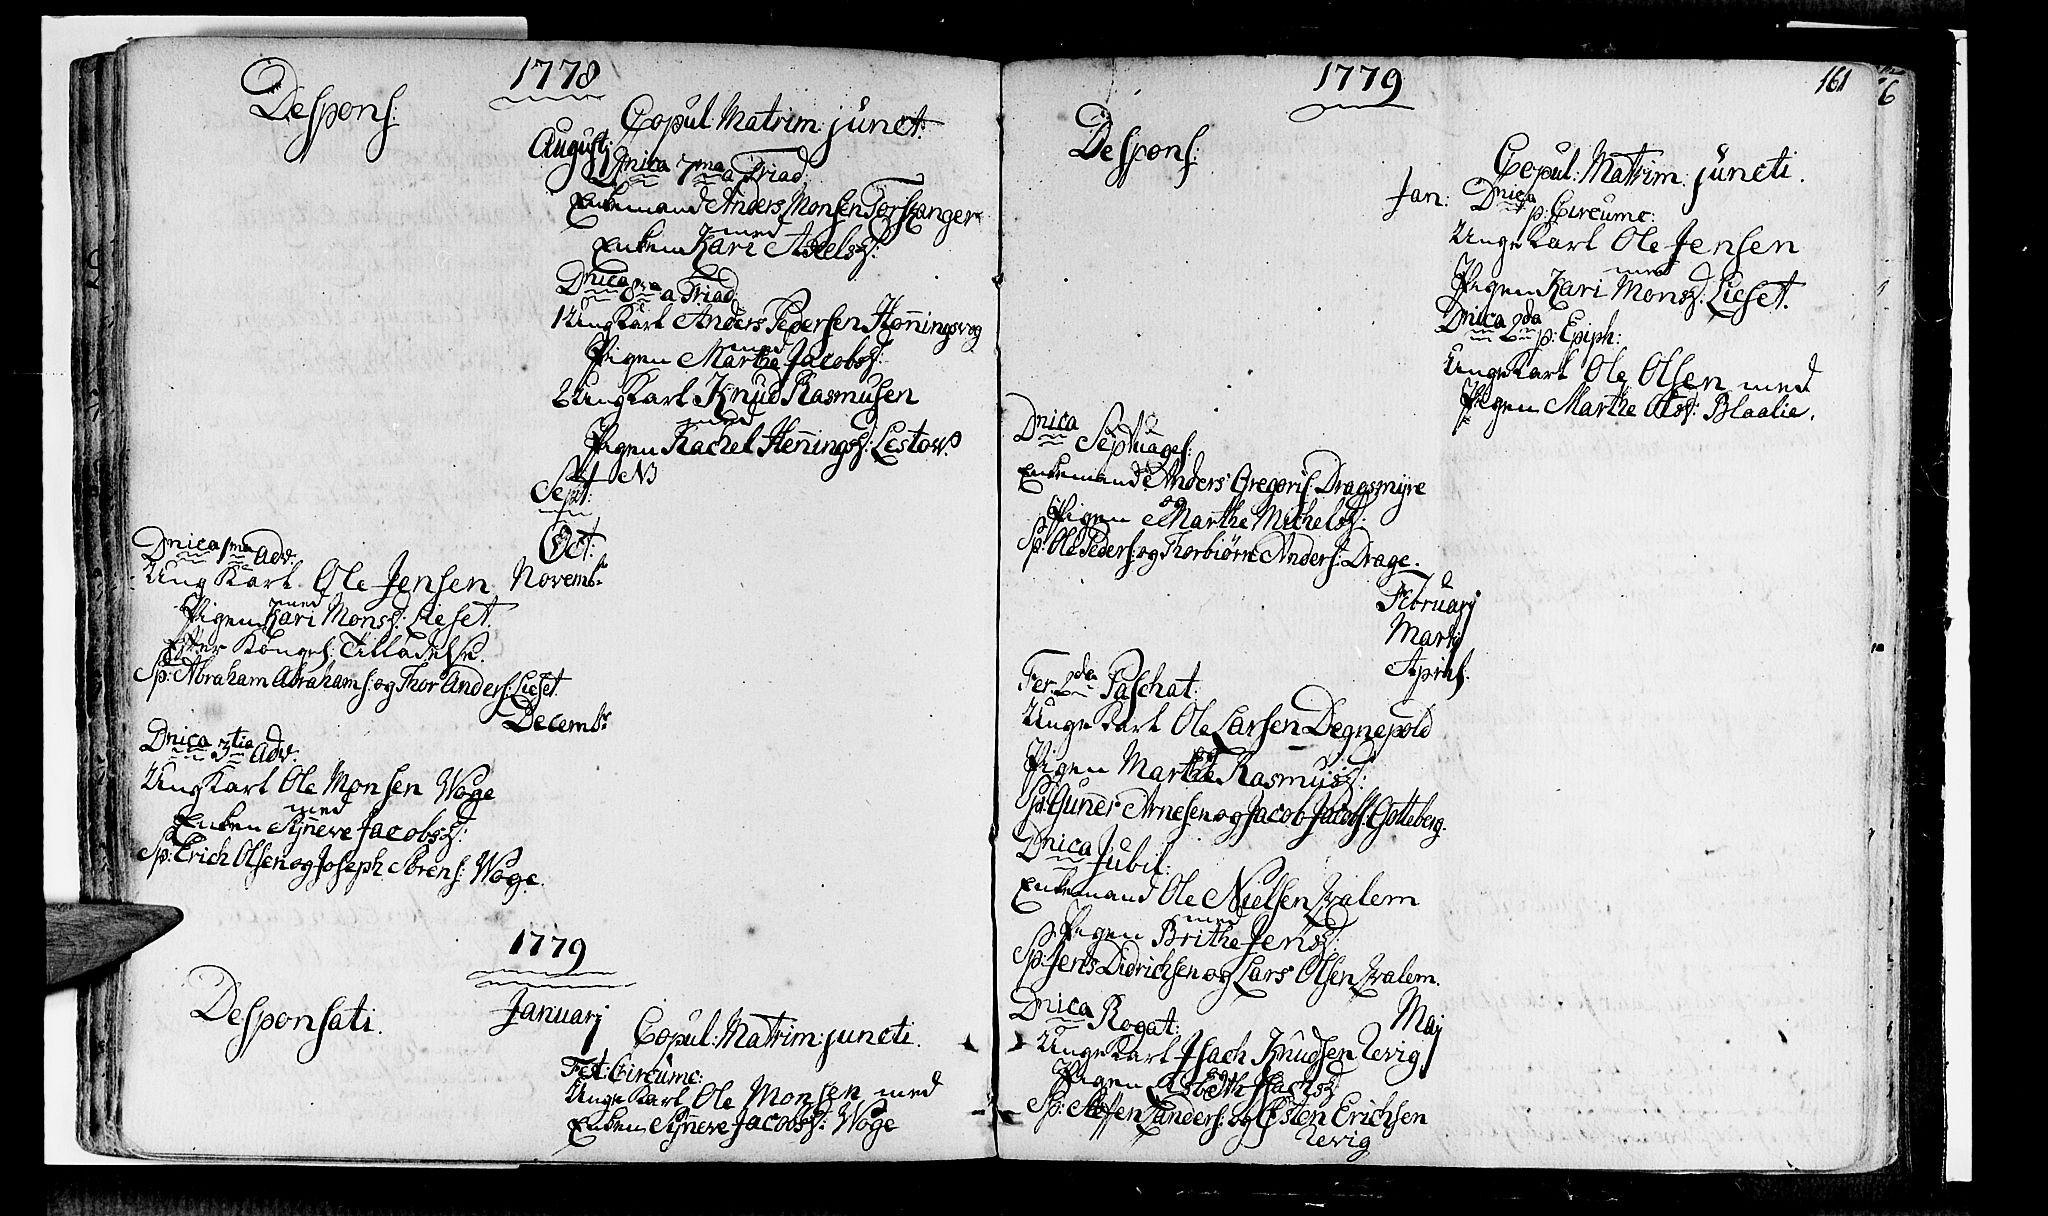 1778
Despons:
Copul: Matrim: juncti:
Augusti
Dnica 7ma a Triad:
Enkemand Anders Monsen Torskanger
med
Enken Kari Axels:
Dnica 8va a Triad:
1 Ung Karl Anders Pedersen Honingsvog
med
Pigen Marthe Jacobsd:
2 Ung Karl Knud Rasmusen
med
Pigen Rachel Henningsd:
Sept:
Oct:
Dnica 1ma Adv.
Ung Karl Ole Jensen
Novembr
med
Pigen Kari Monsd: Lieset.
Efter Konges: Tilladelse.
Sp: Abraham Abrahams: og Thor Anders: Lieset
Decembr
Dnica 3tia Adv.
Ung Karl Ole Monsen Woge
med
Enken Synneve Jacobsd:
Sp: Erich Olsen og Joseph Sörens: Woge.
1779
Desponsati.
Januarj
Copul: Matrim: juncti.
Fest: Circumc:
Unge Karl Ole Monsen med
Enken Synneve Jacobsd: Woge
1779
161
Despons:
Copul: Matrim: juncti.
Jan: Dnica p: Circumc:
Unge Karl Ole Jensen
med
Pigen Kari Monsd: Lieset.
Dnica 2da p: Epiph:
Unge Karl Ole Olsen med
Pigen Marthe Olsd: Blaalie.
Dnica Septuages:
Enkemand Anders Gregoris: Dragsmyre
og
Pigen Marthe Michelsd:
Sp: Ole Peders: og Thorbiörn Anders: Drage.
Februarj
Martj
April:
Fer: 2da Paschat:
Unge Karl Ole Larsen Degnepold
og
Pigen Marthe Rasmusd:
Sp: Guner Arnesen og Jacob Jacobs: Gotteberg.
Dnica Jubil:
Enkemand Ole Nielsen
med
Pigen Brithe Jensd:
Sp: Jens Didrichsen og Lars Olsen
Maj
Dnica Rogat:
Unge Karl Isach Knudsen
og
Pigen Lisbeth Isachsd:
Sp: Steffen Landers: og Östen Erichsen